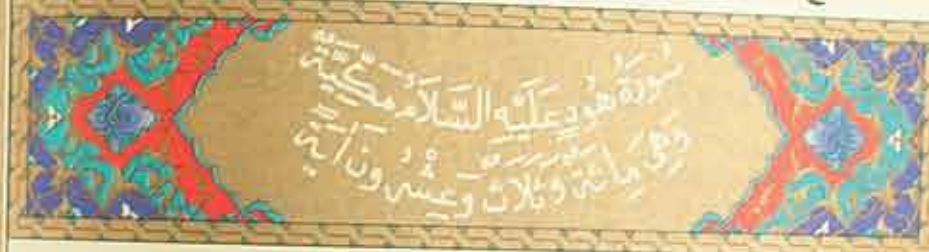 سُورَةُ هُودٍ عَلَيْهِ السَّلَامُ مَكِّيَّةٌ
وَهِيَ مِائَةٌ وَثَلَاثٌ وَعِشْرُونَ آيَةً